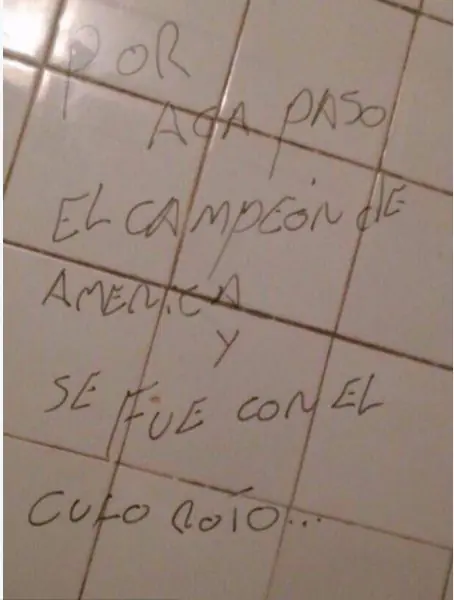 POR
ACA PASO
EL CAMPEÓN dE
AMERICA
Y
SE FUE CON EL
CULO ROÍO...